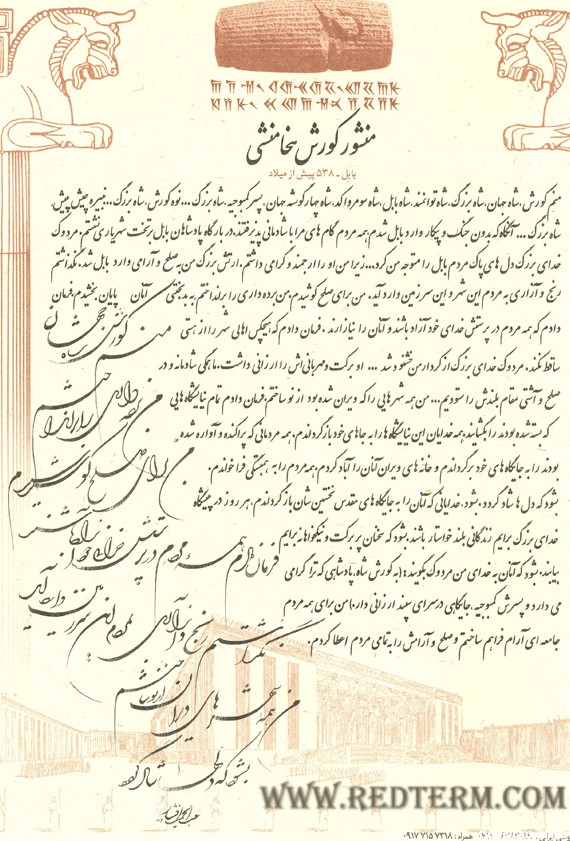 منشور کورش هخامنشی
بابل - ۵۳۸ پیش از میلاد
منم کورش، شاه جهان، شاه بزرگ، شاه توانمند، شاه بابل، شاه سومر و اکد، شاه چهار گوشه جهان. پسر کمبوجیه، شاه بزرگ ... نوه کورش، شاه بزرگ ... نبیره چیش پیش،
شاه بزرگ ... آنگاه که بدون جنگ و پیکار وارد بابل شدم همه مردم گام های مرا با شادمانی پذیرفتند. در بارگاه پادشاهان بابل بر تخت شهریاری نشستم. مردوک
خدای بزرگ دل های پاک مردم بابل را متوجه من کرد ... زیرا من او را ارجمند و گرامی داشتم. ارتش بزرگ من به صلح و آرامی وارد بابل شد. نگذاشتم
رنج و آزاری به مردم این شهر و این سرزمین وارد آید. من برای صلح کوشیدم. من برده داری را برانداختم به بدبختی آنان پایان بخشیدم. فرمان
دادم که همه مردم در پرستش خدای خود آزاد باشند و آنان را نیازارند. فرمان دادم که هیچکس اهالی شهر را از هستی
ساقط نکند. مردوک خدای بزرگ از کردار من خشنود شد ... او برکت و مهربانی اش را ارزانی داشت. ما همگی شادمانه و در
صلح و آشتی مقام بلندش را ستودیم ... من همه شهرهایی را که ویران شده بود از نو ساختم. فرمان دادم تمام نیایشگاه هایی
که بسته شده بودند را بگشایند. همه خدایان این نیایشگاه ها را به جاهای خود بازگرداندم. همه مردمانی که پراکنده و آواره شده
بودند را به جایگاه های خود برگرداندم و خانه های ویران آنان را آباد کردم. همه مردم را به همبستگی فراخواندم.
بشود که دل ها شاد گردد. بشود، خدایانی که آنان را به جایگاه های مقدس نخستین شان بازگرداندم، هر روز در پیشگاه
خدای بزرگ برایم زندگانی بلند خواستار باشند. بشود که سخنان پر برکت و نیکخواهانه برایم
بیابند. بشود که آنان به خدای من مردوک بگویند: (به کورش شاه، پادشاهی که ترا گرامی
می دارد و پسرش کمبوجیه، جایگاهی در سرای سپند ارزانی دار.) من برای همه مردم
جامعه ای آرام فراهم ساختم و صلح و آرامش را به تمامی مردم اعطا کردم.
منم کورش
شاه جهان
من برده داری را برانداختم
من برای صلح کوشیدم
فرمان دادم همه مردم در پرستش خدای خود آزاد باشند
نگذاشتم رنج و آزاری به مردم این سرزمین وارد آید
من همه شهرهای ویران را از نو ساختم
بشود که دلها شاد گردد
WWW.REDTERM.COM
همراه: ۰۹۱۷ ۷۱۵ ۷۳۱۸